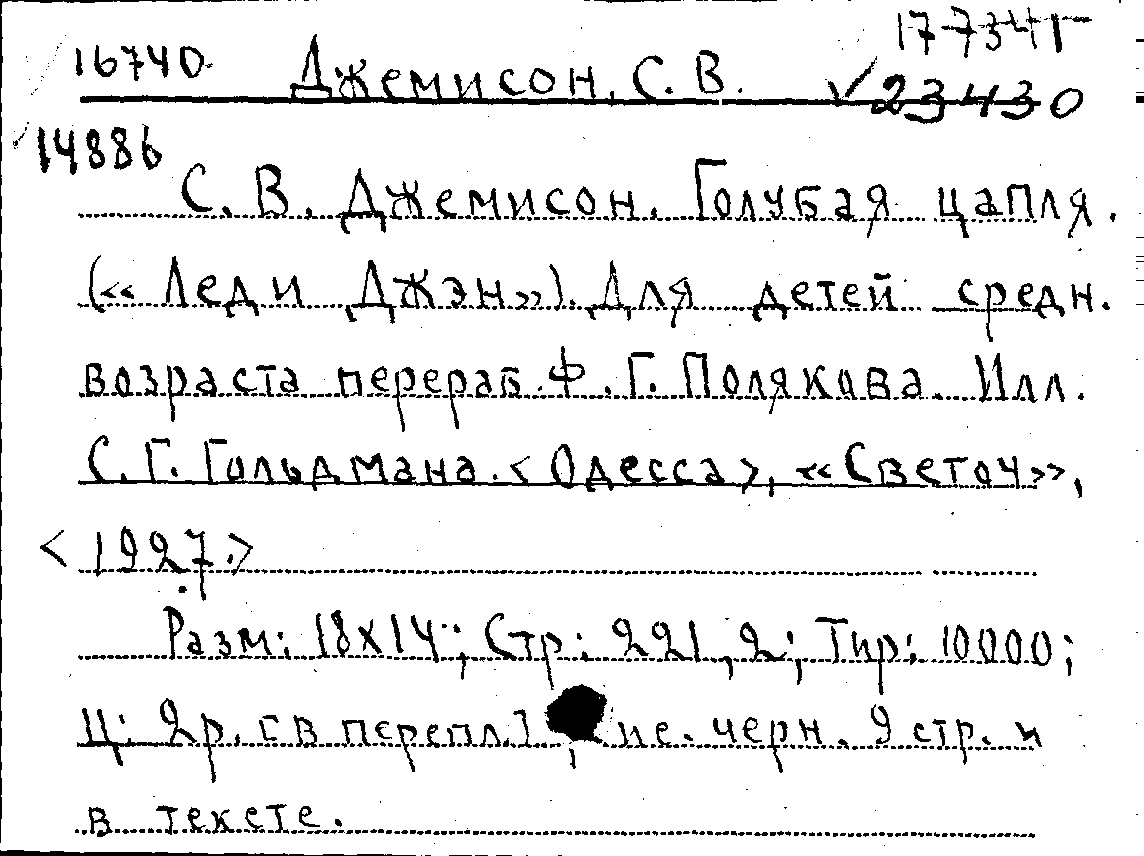 16740 Джемисон, С. В. 23430
14886
С. В. Джемисон. Голубая цапля.
(«Леди Джэн»). Для детей средн.
возраста перераб. Ф. Г. Полякова. Илл.
С. Г. Гольдмана. <Одесса>, «Светоч»,
<1927.>
Разм: 18х14; Стр: 221, 2; Тир: 10000;
Ц: 2р. [в перепл.]; ис. черн. 9 стр. и
в тексте.